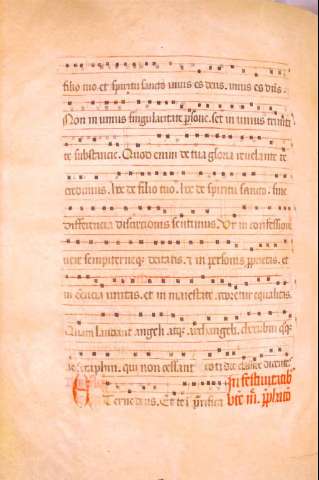 filio tuo. et spiritu sancto unus es deus. unus es dñs.
Non in unius singularitate psone. set in unius trinita
te substancie. Quod enim de tua gloria reuelante te
credimus. hoc de filio tuo. hoc de spiritu sancto. sine
differencia discretionis sentimus. Ut in confessione
uere sempiterneq; deitatis. & in personis proprietas. et
in essencia unitas. et in maiestate adoretur equalitas.
Quam laudant angeli atq; archangeli. cherubin q̃q;
ac seraphin. qui non cessant cotidie clamare dicentes
Eterne deus. Et te i In festiuitatib
bẽ m̃.